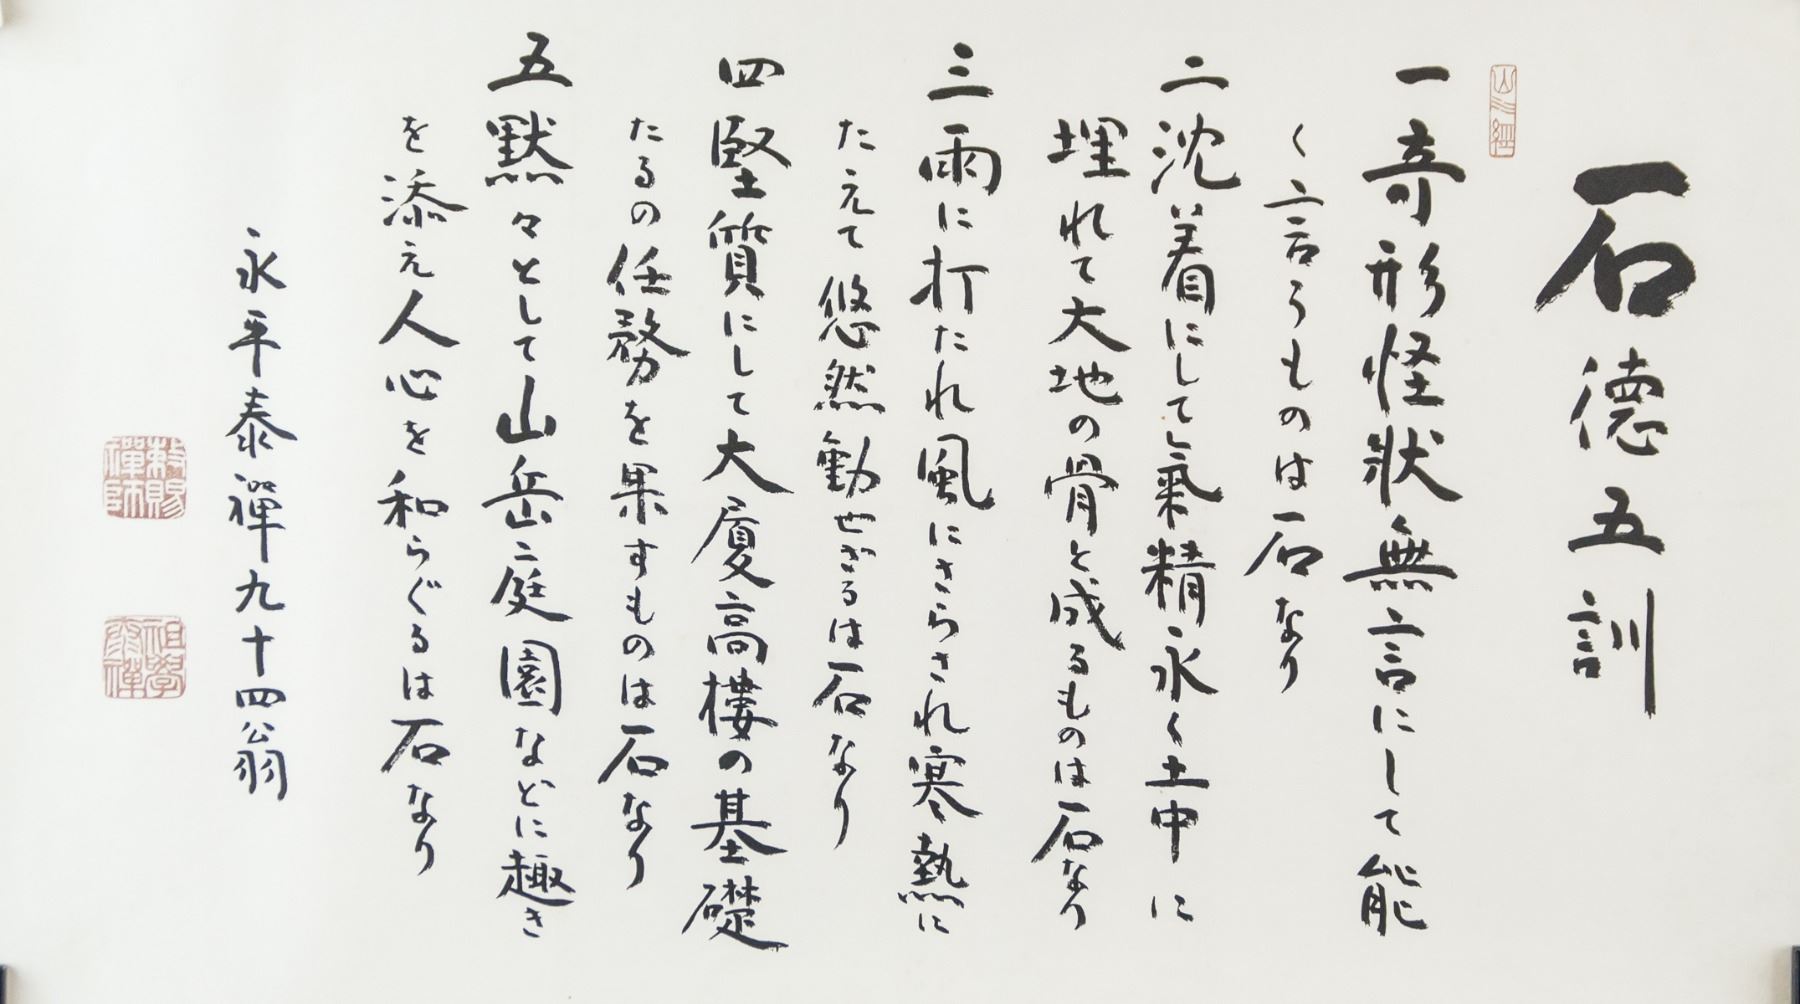 石徳五訓
山水經
一奇形怪状無言にして能
く言うものは石なり
二沈着にして氣精永く土中に
埋れて大地の骨と成るものは石なり
三雨に打たれ風にさらされ寒熱に
たえて悠然動せざるは石なり
四堅質にして大厦高樓の基礎
たるの任務を果すものは石なり
五黙々として山岳庭園などに趣き
を添え人心を和らぐるは石なり
永平泰禪九十四翁
敕賜禪師